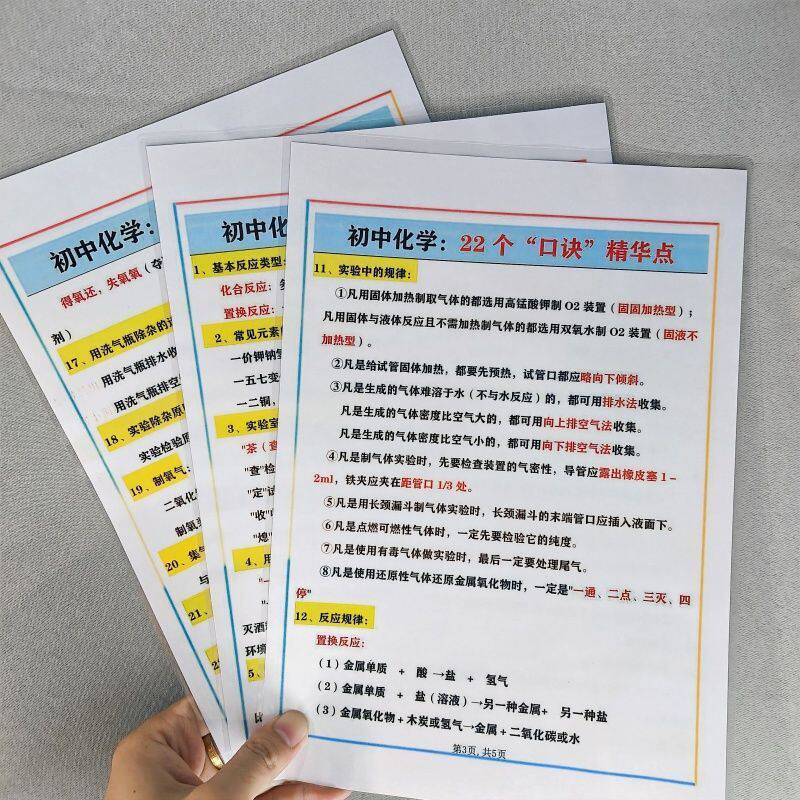 初中化学：
得氧还，失氧氧（夺
剂）
17、用洗气瓶除杂的
用洗气瓶排水收
用洗气瓶排空
18、实验除杂原
实验检验原
19、制氧气：
二氧化
制氧
20、集气
与
21、
初中化
1、基本反应类型：
化合反应：
置换反应：
2、常见元素
一价钾钠
一五七变
一二铜，
3、实验室
"茶（查
"查"检
"定"试
"收"
"熄"
4、用
灭酒
环境
5、
初中化学：22个“口诀”精华点
11、实验中的规律：
①凡用固体加热制取气体的都选用高锰酸钾制O2装置（固固加热型）；
凡用固体与液体反应且不需加热制气体的都选用双氧水制O2装置（固液不
加热型）。
②凡是给试管固体加热，都要先预热，试管口都应略向下倾斜。
③凡是生成的气体难溶于水（不与水反应）的，都可用排水法收集。
凡是生成的气体密度比空气大的，都可用向上排空气法收集。
凡是生成的气体密度比空气小的，都可用向下排空气法收集。
④凡是制气体实验时，先要检查装置的气密性，导管应露出橡皮塞1-
2ml，铁夹应夹在距管口1/3处。
⑤凡是用长颈漏斗制气体实验时，长颈漏斗的末端管口应插入液面下。
⑥凡是点燃可燃性气体时，一定先要检验它的纯度。
⑦凡是使用有毒气体做实验时，最后一定要处理尾气。
⑧凡是使用还原性气体还原金属氧化物时，一定是"一通、二点、三灭、四
停"
12、反应规律：
置换反应：
（1）金属单质 + 酸→盐 + 氢气
（2）金属单质 + 盐（溶液）→另一种金属+ 另一种盐
（3）金属氧化物+木炭或氢气→金属+二氧化碳或水
第3页，共5页